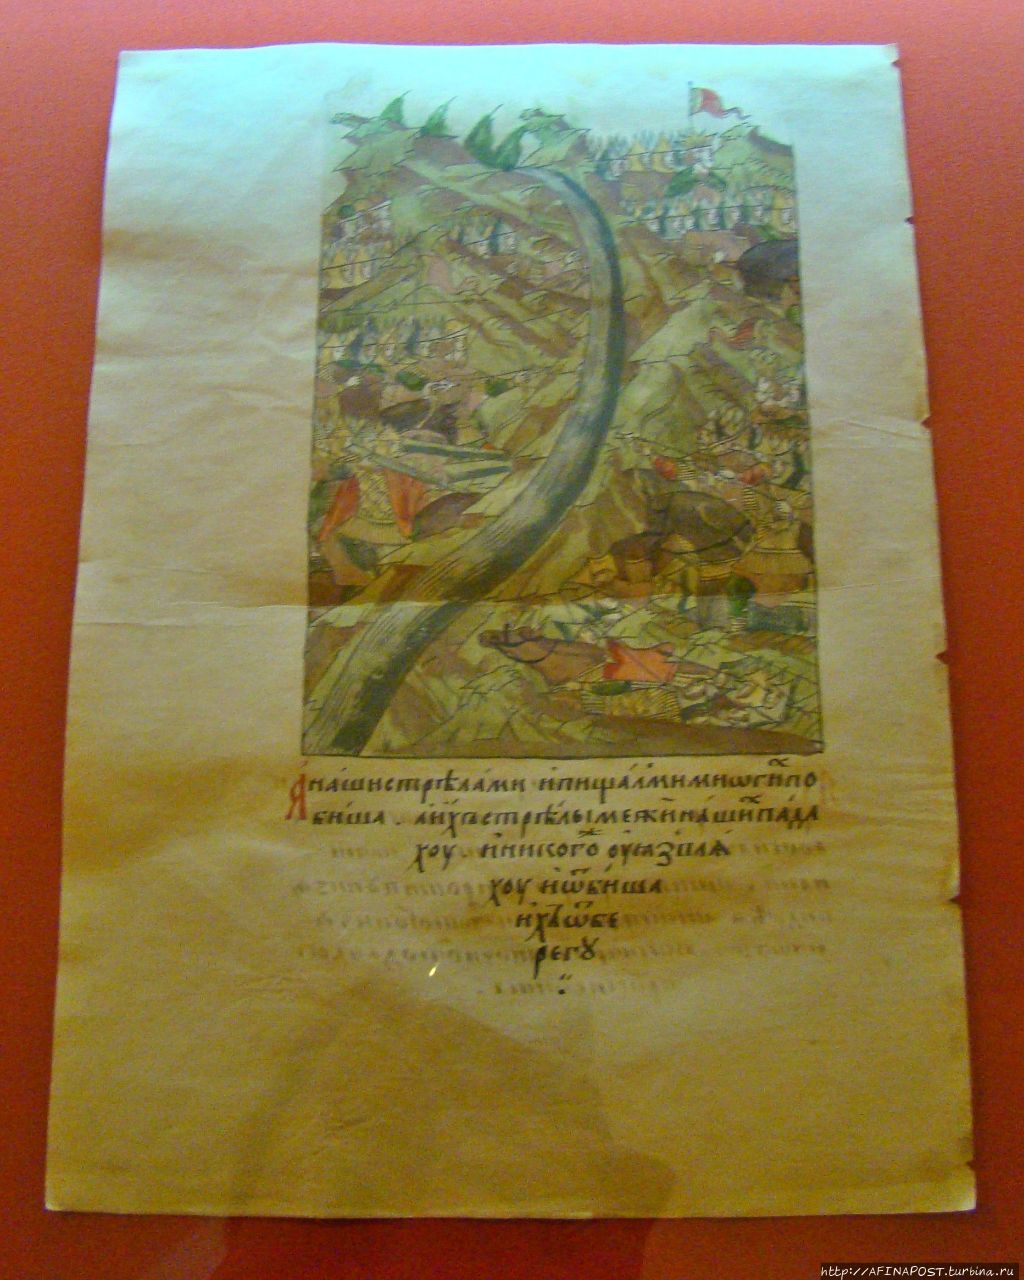 А наши стрѣлами и пищалми многи по
биша. а ихъ стрѣлы межи наши пада
хоу и никого оуꙗзвлѧ
хоу и ѿбиша
ихъ ѿ бе
регꙋ
http://AFINAPOST.turbina.ru